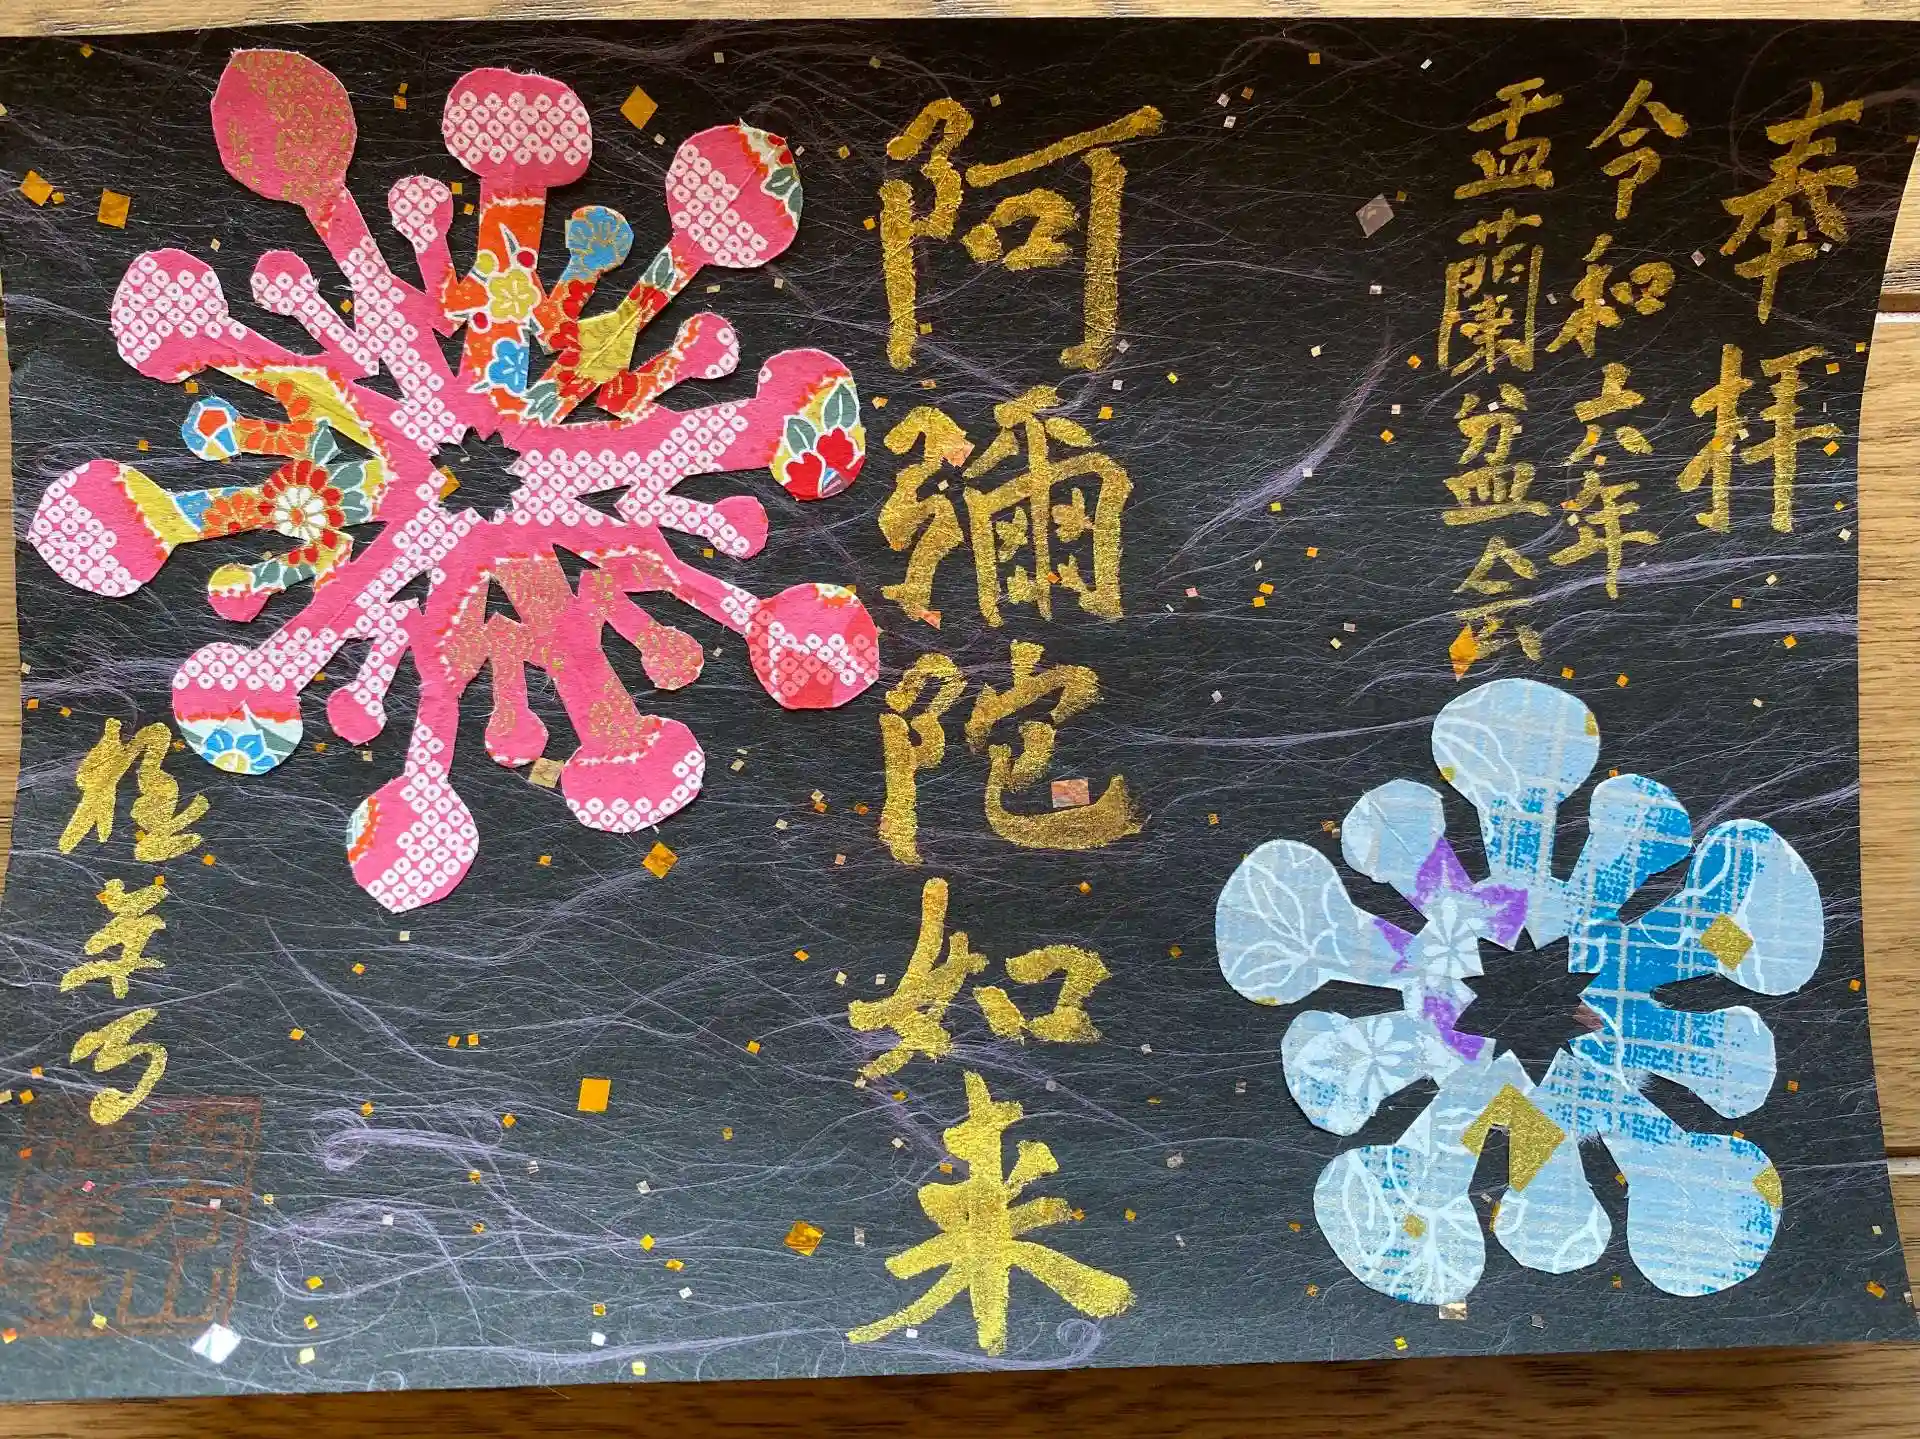 奉拝
令和六年
盂蘭盆会
阿彌陀如来
極楽寺